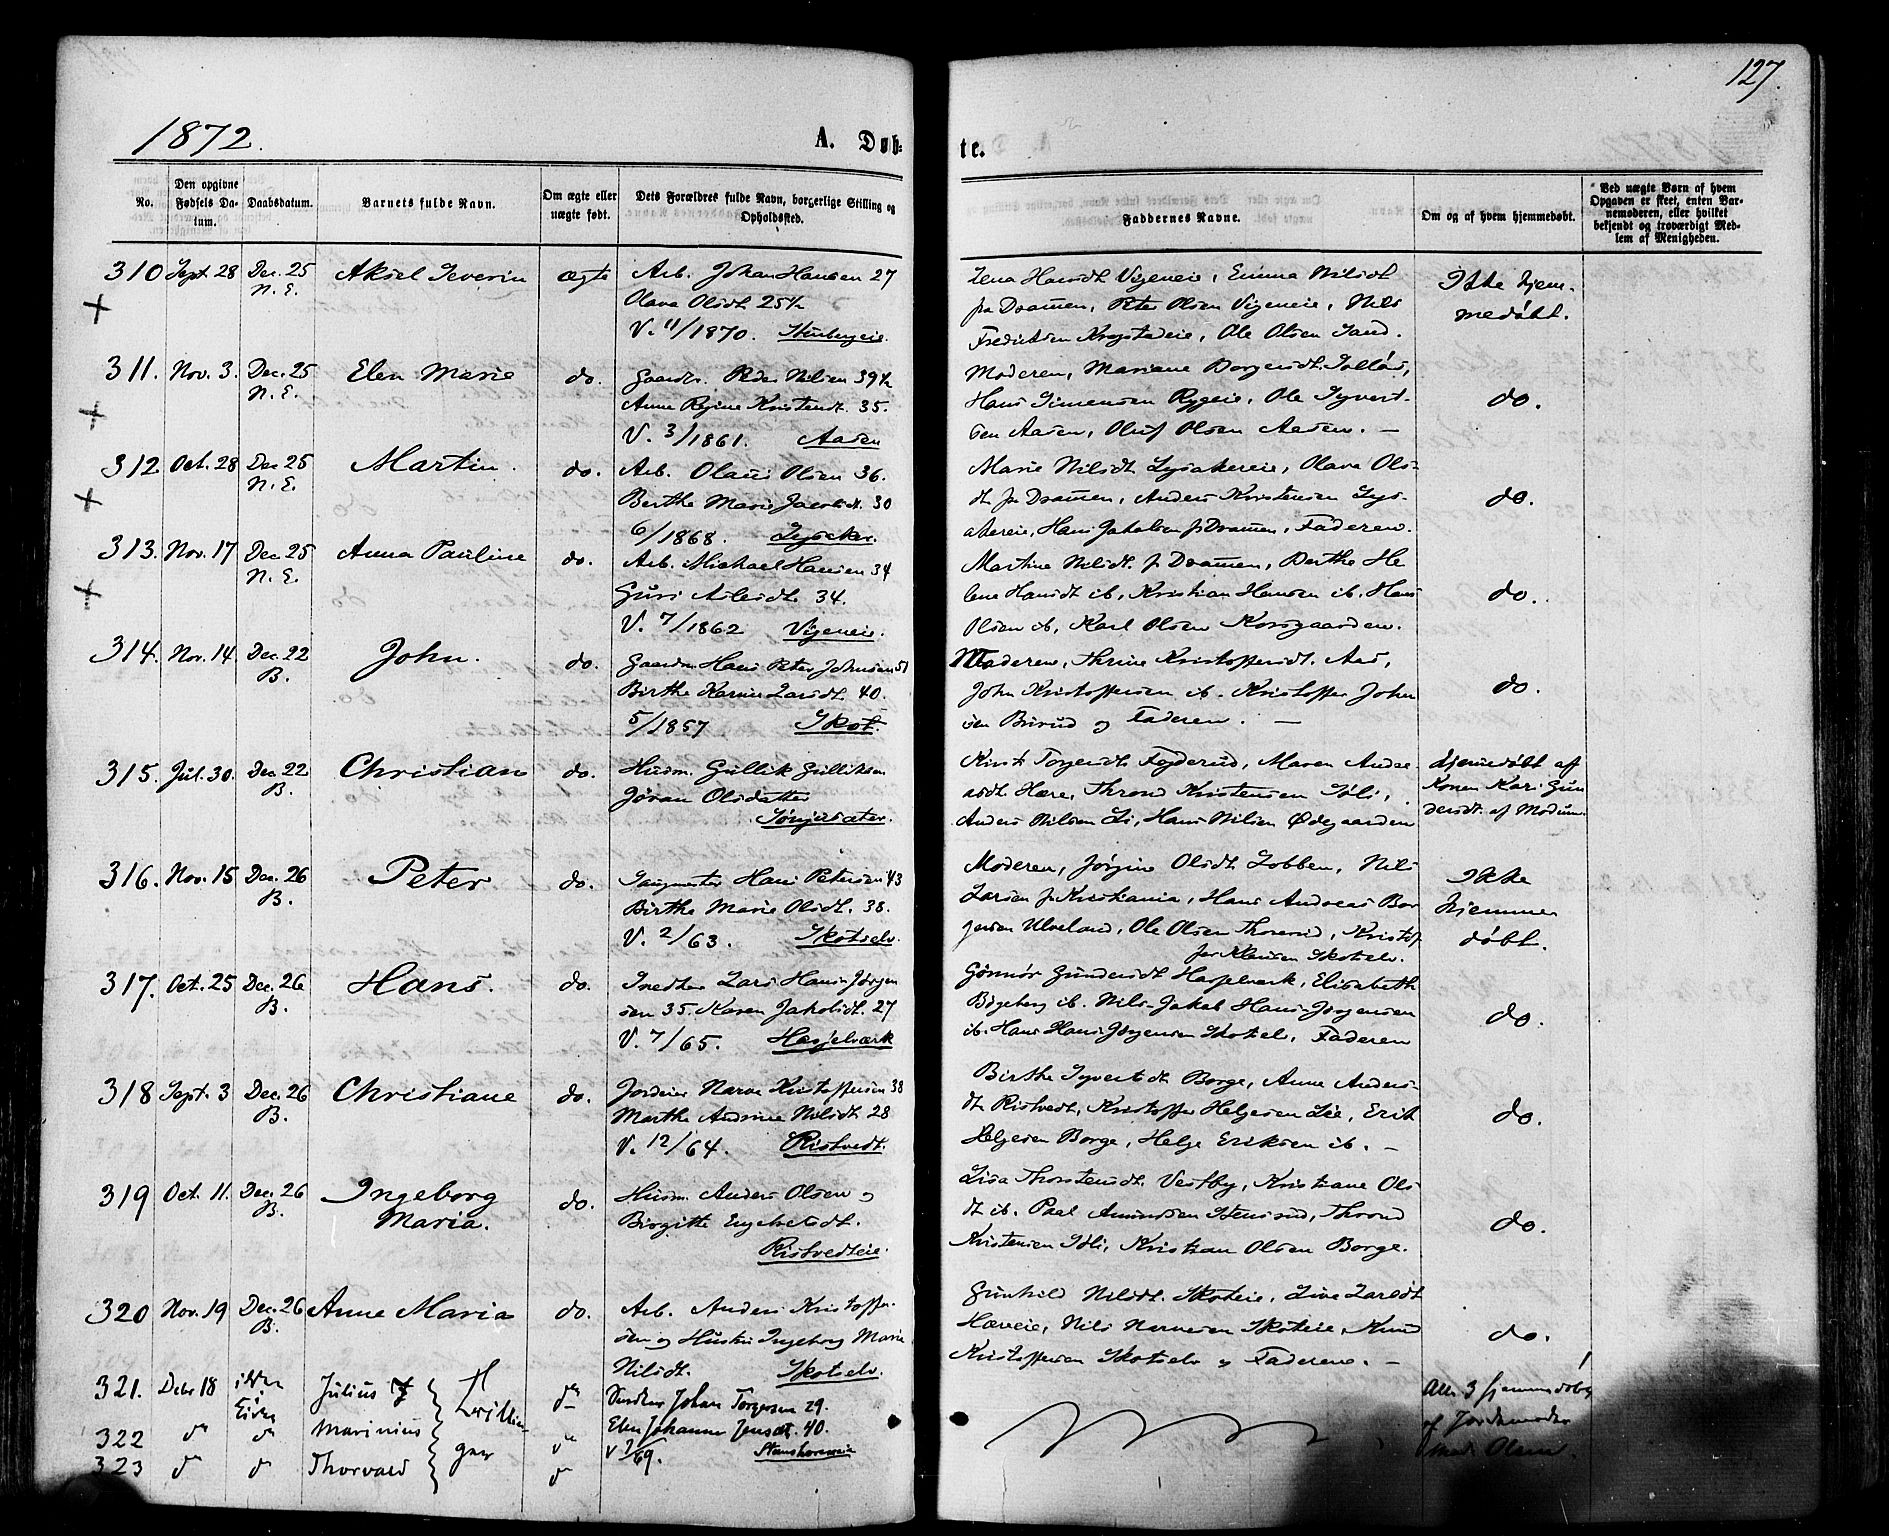 127.
1872.
A. Døb-
te.
No.
Den opgivne Fødsels Da-tum.
Daabsdatum.
Barnets fulde Navn.
Om ægte eller uægte født.
Dets Forældres fulde Navn, borgerlige Stilling og Opholdssted.
Faddernes Navne.
Om og af hvem hjemmedøbt.
Ved uægte Børn af hvem Opgaven er skeet, enten Bar-nemoderen, eller hvilket bekjendt og troværdigt Med-lem af Menigheden.
310 Sept. 28 Dec. 25 Aksel Severin ægte Arb. Johan Hansen 27
N. E. Olava Olsdt 25½
V. 11/1870.
Lena Hansdt Vigeneie, Emma Nilsdt
fra Dramen, Peter Olsen Vigeneie, Nils
Fredriksen Krogstadeie, Ole Olsen Sand.
Ikke hjem-
medøbt.
311. Nov. 3. Dec. 25 Elen Marie do. Gaardm. Peder Nilsen 39½
N. E. Anne Regine Kristendt. 35.
V. 3/1861. Aasen
Moderen, Mariane Borgersdt.
Hans Simensen Ryggeie, Ole Syvert-
sen Aasen, Oluf Olsen Aasen. —
do.
312 Oct. 28 Dec 25 Martin. do. Arb. Olaus Olsen 36.
N. E. Berthe Marie 30
6/1868. Lysaker.
Marie Nilsdt Lysakereie, Olava Ols-
dt fr Dramen, Anders Kristensen Lys-
akereie, Hans Jakobsen fr Dramen, Faderen.
do.
313. Nov. 17 Dec 25 Anna Pauline do. Arb. Michael Hansen 34
N. E. Guri 34.
V. 7/1862 Vigeneie.
Martine Nilsdt. fr Dramen, Berthe He
lene Hansdt ib, Kristian Hansen ib. Hans
Olsen ib, Karl Olsen Korsgaarden.
do.
314. Nov. 14. Dec. 22 John. do. Gaardm Hans Peter Johnsen 51
B. Birthe Karine Larsdt 40.
5/1857 Skot.
Moderen, Thrine Kristoffersdt. Aas,
John Kristoffersen ib. Kristoffer John
sen Burud og Faderen. —
do.
315. Jul. 30. Dec 22 Christian do. Husm. Gullik Gulliksen
B. Jøran Olsdatter
Sønjusæter.
Kirsti Torgersdt. Foyderud, Maren Andre
asdt. Hære, Thrond Kristensen Søli,
Anders Nilsen Li, Hans Nilsen Ødegaarden
Hjemmedøbt af
Konen Kari Gun
dersdt. af Modum.
316. Nov. 15 Dec. 26 Peter do. Hans Petersen 43
B. Birthe Marie Olsdt. 38.
V. 2/63. Skotselv.
Moderen, Jørgine Olsdt Lobben, Nils
Larsen fr Kristiania, Hans Andreas Bor
gersen Ulveland, Ole Olsen Thorerud, Kristof
fer Klausen Skotselv.
Ikke
hjemme
døbt.
317. Oct. 25 Dec. 26 Hans. do. Lars Hans Jørgen
B. sen 35. Karen Jakobsdt. 27
V. 7/65. Hasselværk
Gønnør Gundersdt Hasselværk, Elisabeth
Bøgeberg ib. Nils Jakob Hans Jørgensen
ib. Hans Hans Jørgensen Skotselv, Faderen
do.
318 Sept. 3 Dec. 26 Christiane do. Narve Kristoffersen 38
B. Marthe Andrine Nilsdt 28
V. 12/64. Ristvedt.
Birthe Syvertsdt Borge, Anne Anders-
dt Ristvedt, Kristoffer Helgesen Lie, Erik
Helgesen Borge, Helge Eriksen ib. —
do.
319 Oct. 11. Dec. 26 Ingeborg do. Husm. Anders Olsen og
B. Maria. Birgitte Engebretsdt.
Ristvedteie.
Lisa Thorstensdt. Vestby, Kristiane Ols
dt ib. Paul Amundsen Stensrud, Thrond
Kristensen Søli, Kristian Olsen Borge.
do.
320 Nov. 19 Dec. 26 Anne Maria do. Arb. Anders Kristoffer-
B. sen og Hustru Ingeborg Marie
Nilsdt. Skotselv.
Gunhild Nilsdt. Skoteie, Live Larsdt
Hæreie, Nils Narvesen Skoteie, Knud
Kristoffersen Skotselv og Faderen. —
do.
321. Debr 18 Julius Johan Torgersen 29.
322 Marinius Elen Johanne Jensdt. 40.
323 Thorvald
Alle 3 hjemmedøbt
af Jordemoder
Olsen.